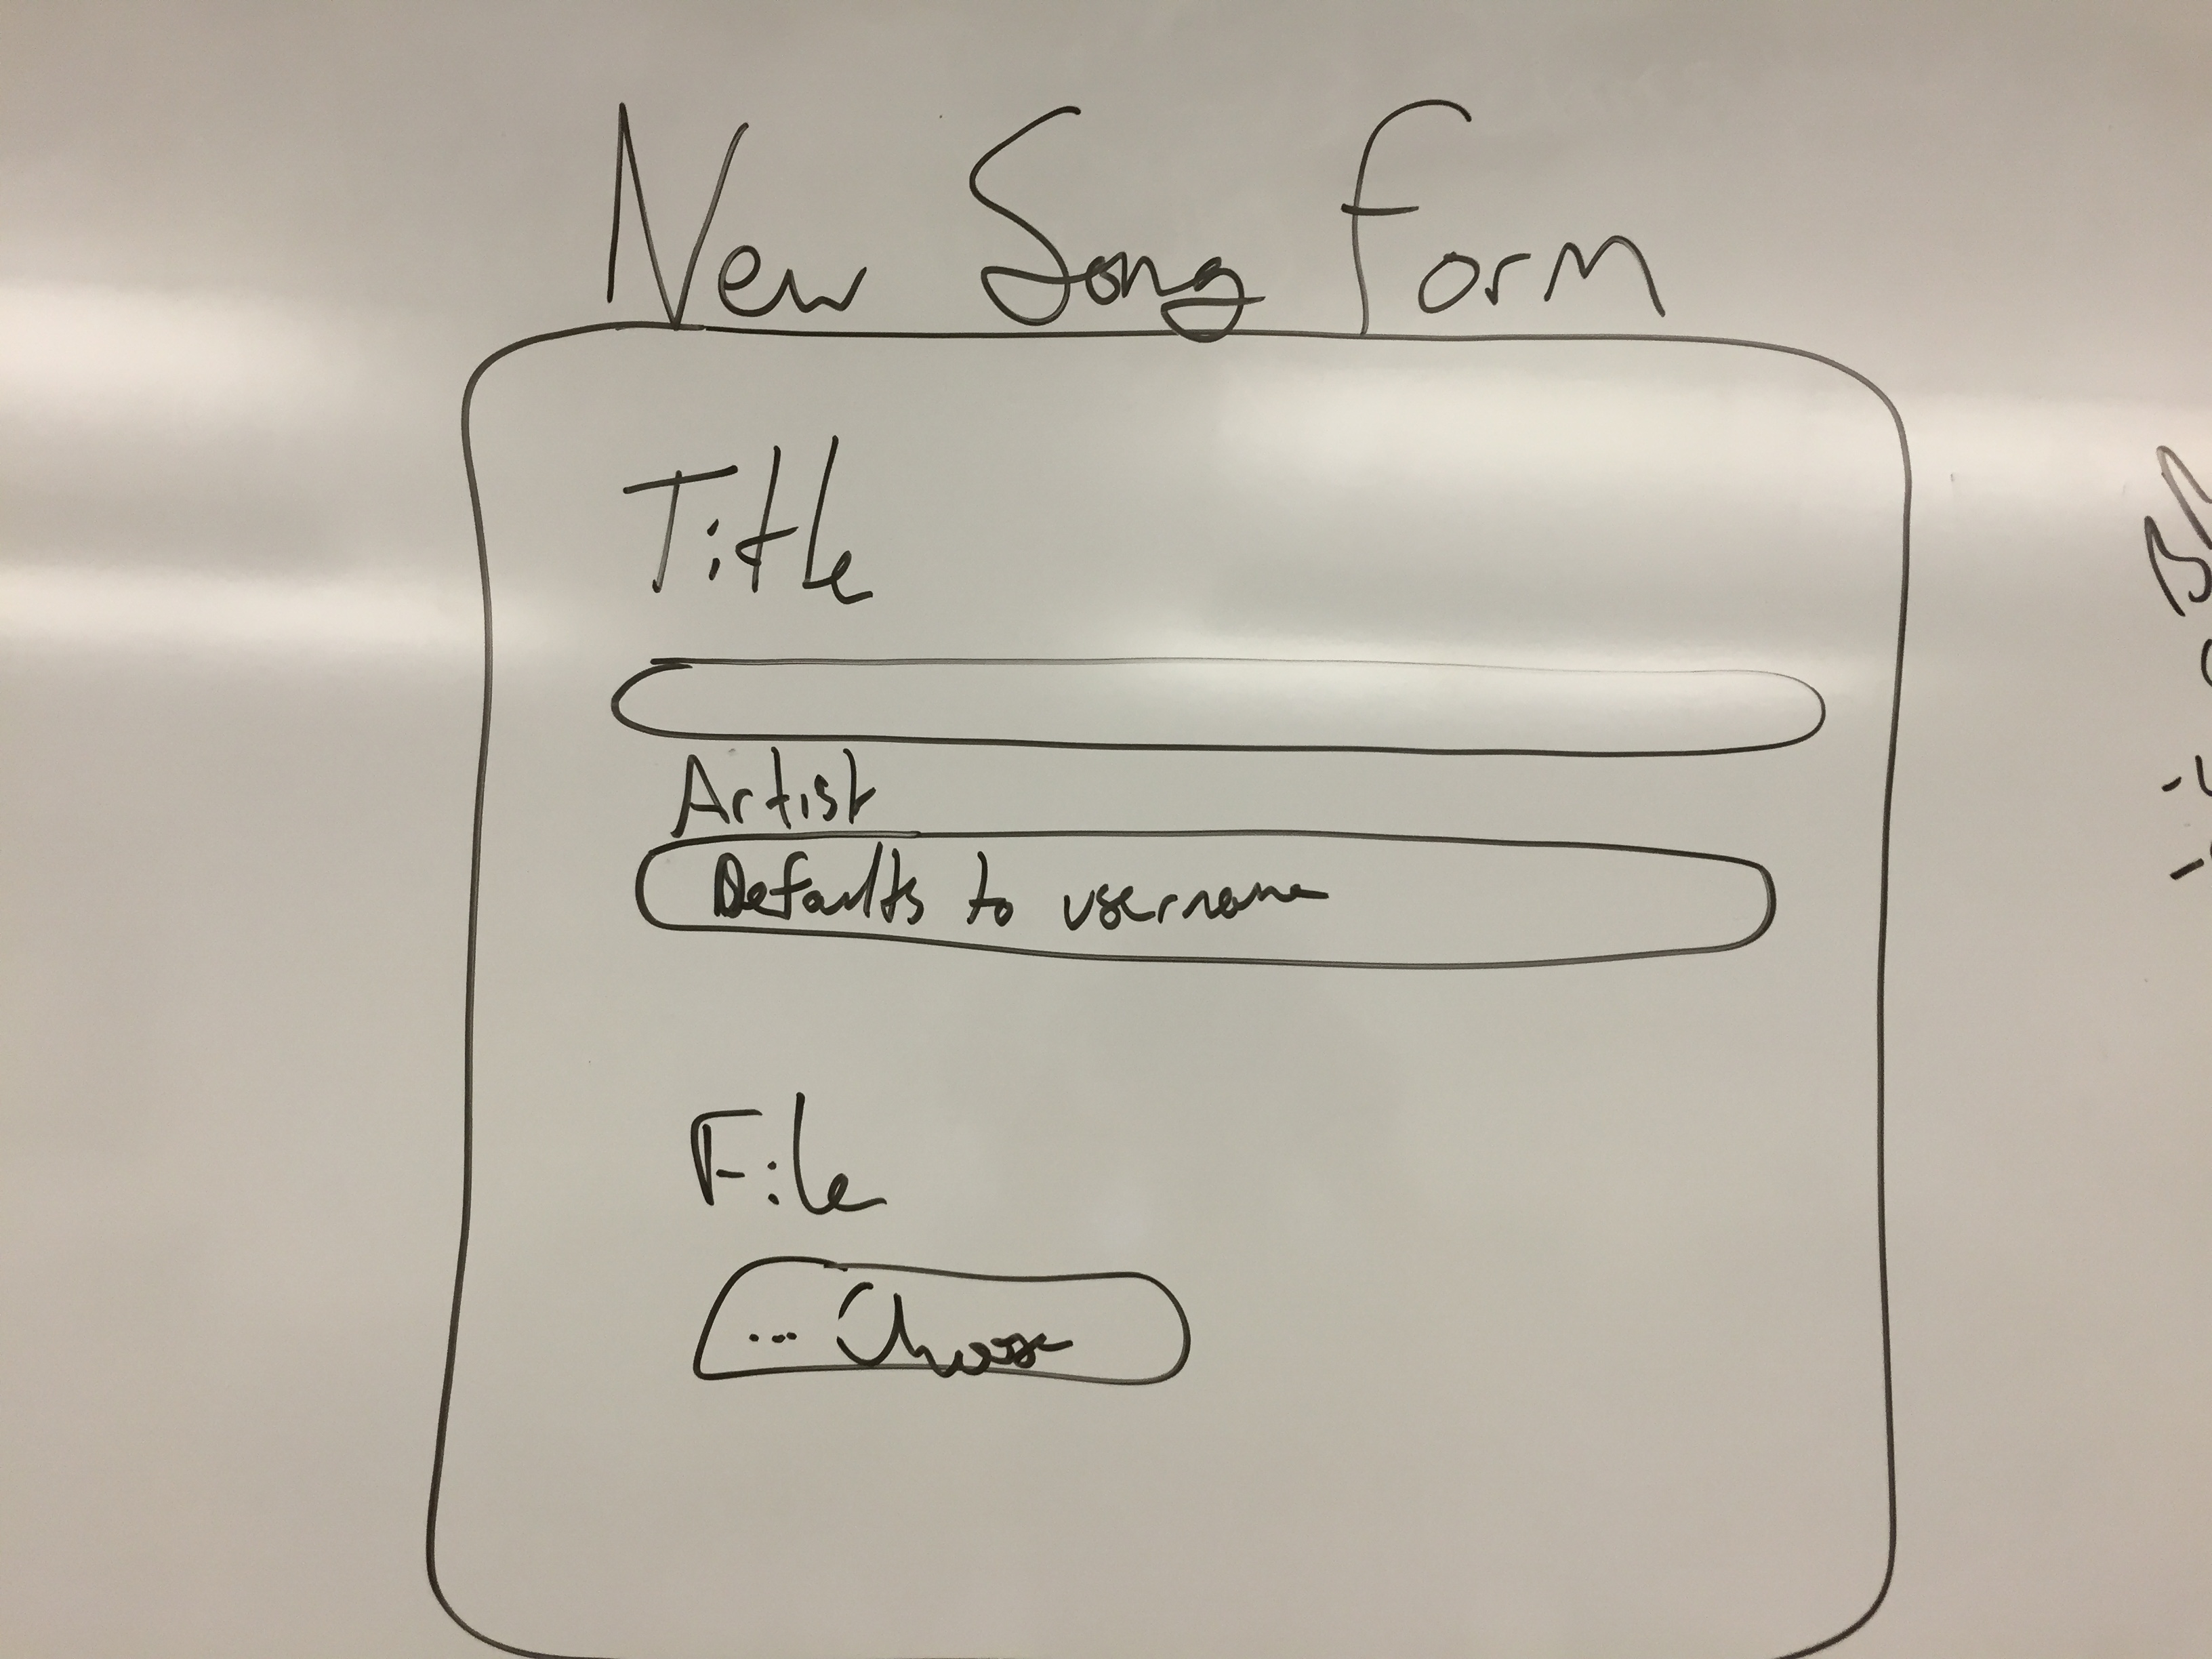 New Song Form
Title
Artist
Defaults to username
File
... Choose